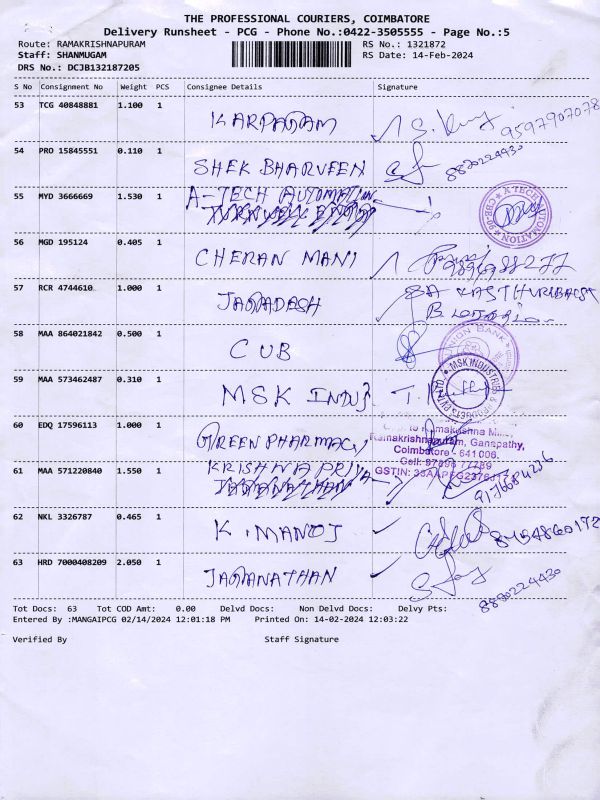 THE PROFESSIONAL COURIERS, COIMBATORE
Delivery Runsheet - PCG - Phone No.:0422-3505555 - Page No.:5
Route: RAMAKRISHNAPURAM RS No.: 1321872
Staff: SHANMUGAM RS Date: 14-Feb-2024
DRS No.: DCJB132187205
S No Consignment No Weight PCS Consignee Details Signature
53 TCG 40848881 1.100 1 KARPAGAM 9597907078
54 PRO 15845551 0.110 1 SHEK BHARVEEN 8870224430
55 MYD 3666669 1.530 1 A-TECH AUTOMATION
A TECH AUTOMATION
56 MGD 195124 0.405 1 CHERAN MANI
57 RCR 4744610 1.000 1 JAGADESH
58 MAA 864021842 0.500 1 CUB
UNION BANK
59 MAA 573462487 0.310 1 MSK INDUS
MSK INDUSTRIES
60 EDQ 17596113 1.000 1 GREEN PHARMACY
Ramakrishnapuram, Ganapathy,
Coimbatore - 641 006.
61 MAA 571220840 1.550 1 KRISHNA PRIYA
62 NKL 3326787 0.465 1 K. MANOJ
63 HRD 7000408209 2.050 1 JAGANATHAN 8870224430
Tot Docs: 63 Tot COD Amt: 0.00 Delvd Docs: Non Delvd Docs: Delvy Pts:
Entered By :MANGAIPCG 02/14/2024 12:01:18 PM Printed On: 14-02-2024 12:03:22
Verified By Staff Signature